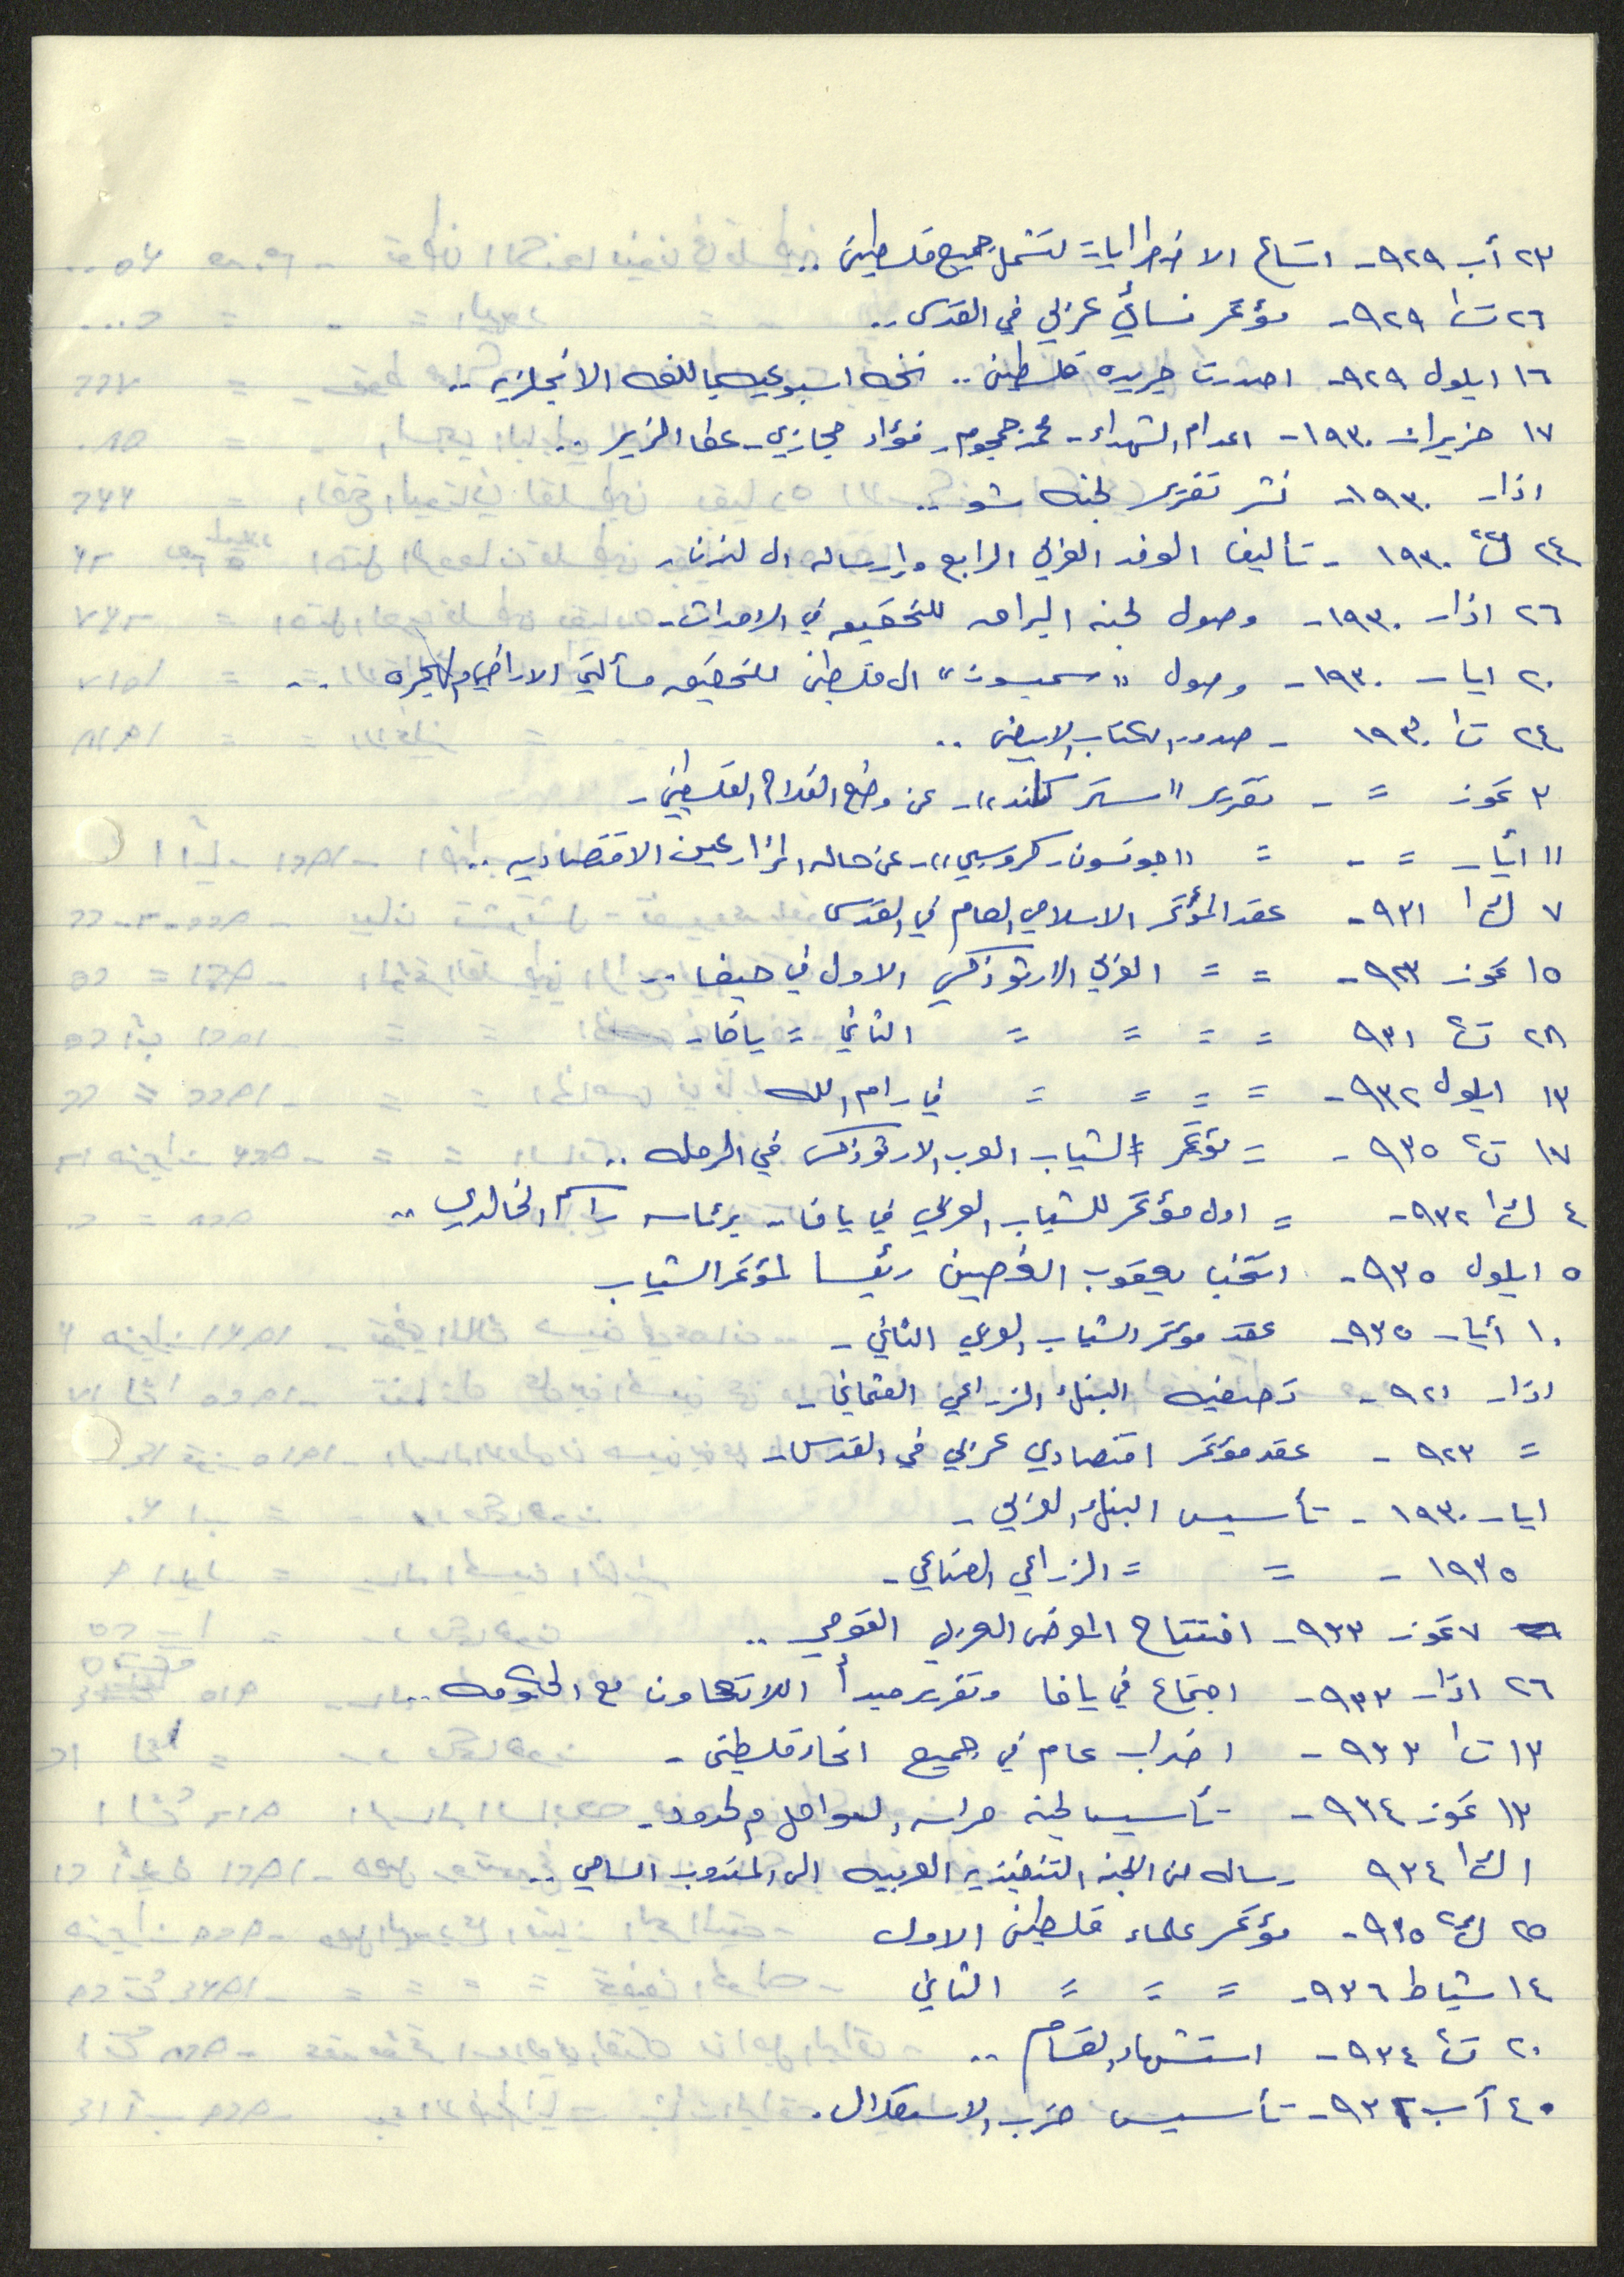 ٢٣ أب ٩٢٩- اتساع الاضطرابات لتشمل جميع فلسطين ..
٢٦ ت١ ٩٢٩- مؤتمر نسائي عربي في القدس ..
١٦ ايلول ٩٢٩- اصدرت جريده فلسطين .. نسخه اسبوعيه باللغه الانجلزيه ..
١٧ حزيران ١٩٣٠- اعدام الشهداء - محمد جمجوم - فؤاد حجازي - عطا الزير ..
اذار ١٩٣٠- نشر تقرير لجنه شو ..
٢٤ ك٢ ١٩٣٠ - تأليف الوفد العربي الرابع وإرساله الى لندن -
٢٦ اذار ١٩٣٠- وصول لجنه البراق للتحقيق في الاحداث -
٢٠ ايار ١٩٣٠- وصول "سمبسون" الى فلسطين للتحقيق مسألتي الاراضي والهجره ..
٢٤ ت١ ١٩٣٠ - صدور الكتاب الابيض ..
٣ تموز = - تقرير "ستركلاند" - عن وضع الفلاح الفلسطيني -
١١ أيار = - = "جونسون - كروسبي" - عن حاله المزارعين الاقتصاديه ..
٧ ك١ ٩٣١- عقد المؤتمر الاسلامي العام في القدس
١٥ تموز ٩٢٣- = = العربي الارتوذكسي الاول في حيفا ..
٢٨ ت٢ ٩٣١ = = = = الثاني = يافا -
١٣ ايلول ٩٣٢- = = = = في رام الله
١٧ ت٢ ٩٣٥ - = مؤتمر الشباب العرب الارتوذكس في الرمله ..
٤ ك١ ٩٣٢- = اول مؤتمر للشباب العربي في يافا - برئاسه راسم الخالدي ..
٥ ايلول ٩٣٥- انتخب يعقوب الغصين رئيسا لمؤتمر الشباب
١٠ أيار ٩٣٥- عقد مؤتمر الشباب العربي الثاني -
اذار ٩٢١ - تصفيه البنك الزراعي العثماني -
= ٩٢٣ - عقد مؤتمر اقتصادي عربي في القدس -
ايار ١٩٣٠ - تأسيس البنك العربي -
١٩٣٥ - = = الزراعي الصناعي -
٧ تموز ٩٣٣- افتتاح المعرض العربي القومي ..
٢٦ اذار ٩٣٣- اجتماع في يافا وتقرير مبدأ اللاتعاون مع الحكومه ..
١٣ ت١ ٩٣٣ - اضراب عام في جميع انحاء فلسطين -
١٣ تموز ٩٣٤ - تأسيس لجنه حراسه السواحل والحدود -
١ ك١ ٩٣٤ رساله من اللجنه التنفيذيه العربيه الى المندوب السامي ..
٢٥ ك٢ ٩٣٥- مؤتمر علماء فلسطين الاول
١٤ شباط ٩٣٦- = = = الثاني
٢٠ ت٢ ٩٣٤- استشهاد القسام ..
٤ آب ٩٣٢- تأسيس حزب الاستقلال.